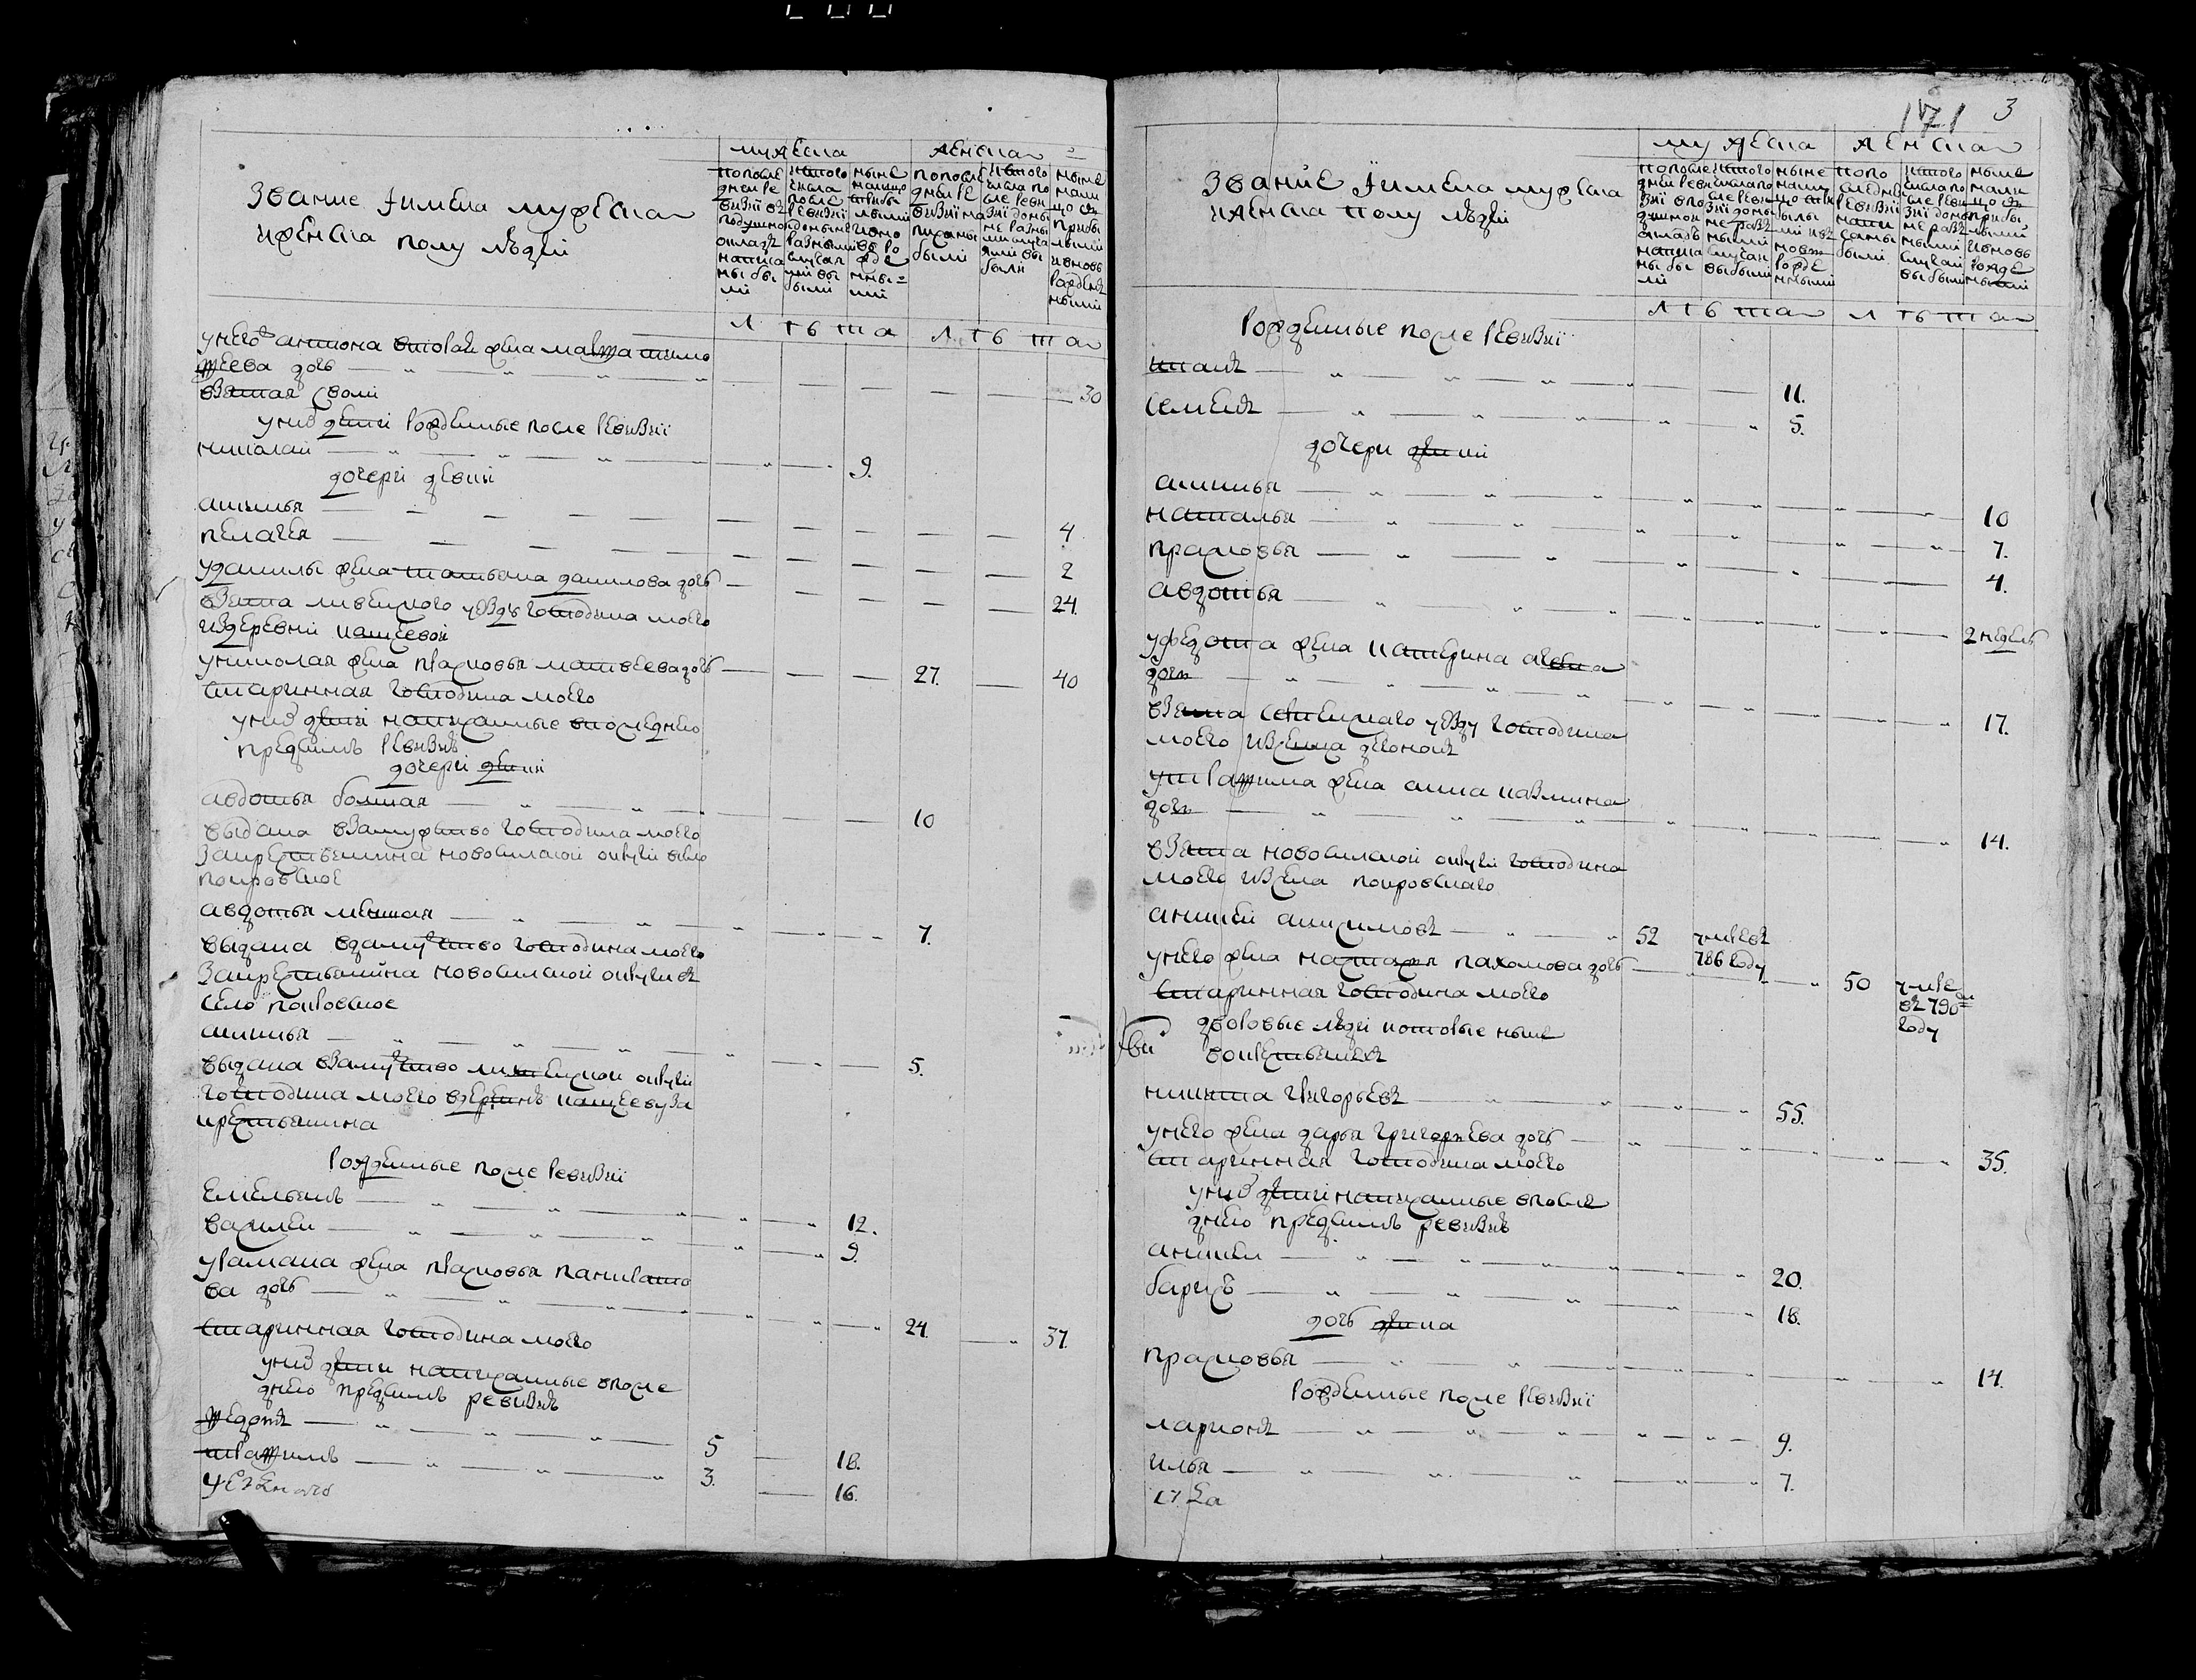 Звание и имена мужеска
и женска полу людей
мужеска
женска
по последней ревизии в подушном окладе написаны были
из того числа после ревизии до ныне разными случаями выбыли
ныне на лицо с прибылыми и вновь рожденными
по последней ревизии написаны были
из того числа после ревизии до ныне разными случаями выбыли
ныне на лицо с прибылыми и вновь рожденными
лета
лета
у него антона вторая жена марфа тимо
феева дочь
взятая с воли 30
у них дети рожденные после ревизии
николай 9.
дочери девки
аксинья 4
пелагея 2
у данилы жена татьяна данилова дочь 24.
взята ливенского уезда господина моего
из деревни кащеевой
у николая жена прасковья матвеева дочь 27. 40
старинная господина моего
у них дети написанные в последнею
пред сим ревизию
дочери девки
авдотья болшая 10
выдана в замужство господина моего
за крестьянина новосилской округи в село
покровское
авдотья меншая 7.
выдана в замужство господина моего
за крестьянина новосилской округи в
село покровское
аксинья 5.
выдана в замужство ливенской округи
господина моего в деревню кащееву за
крестьянина
рожденные после ревизии
емельянъ 12.
василей 9.
у рамана жена прасковья панкрато
ва дочь 24. 37.
старинная господина моего
у них дети написанные в после
днею пред сим ревизию
федотъ 5 18.
трафимъ 3. 16.
171 3
Звание и имена мужеска
и женска полу людей
мужеска
женска
по последней ревизии в подушном окладе написаны были
из того числа после ревизии до ныне разными случаи выбыли
ныне на лицо с прибылыми и вновь рожденными
по последней ревизии написаны были
из того числа после ревизии до ныне разными случаи выбыли
ныне на лицо с прибылыми и вновь рожденными
лета
лета
рожденные после ревизии
11.
семенъ 5.
дочери девки
аксинья 10
наталья 7.
прасковья 4.
авдотья 2 недель
у федота жена катерина
дочь 17.
взята уезду господина
моего из села
у трафима жена анна
дочь 14.
взята новосилской округи господина
моего из села покровскаго
аникей анисимовъ 52 умре въ
786 году
у него жена настасья пахомова дочь 50 умре
въ 790м
году
старинная господина моего
дворовые люди которые ныне
во крестьянехъ
никита григорьевъ 55.
у него жена дарья григорьева дочь 35.
старинная господина моего
у них дети написанные в после
днею пред сим ревизию
аникей 20.
барисъ 18.
дочь девка
прасковья 14.
рожденные после ревизии
ларионъ 9.
илья 7.